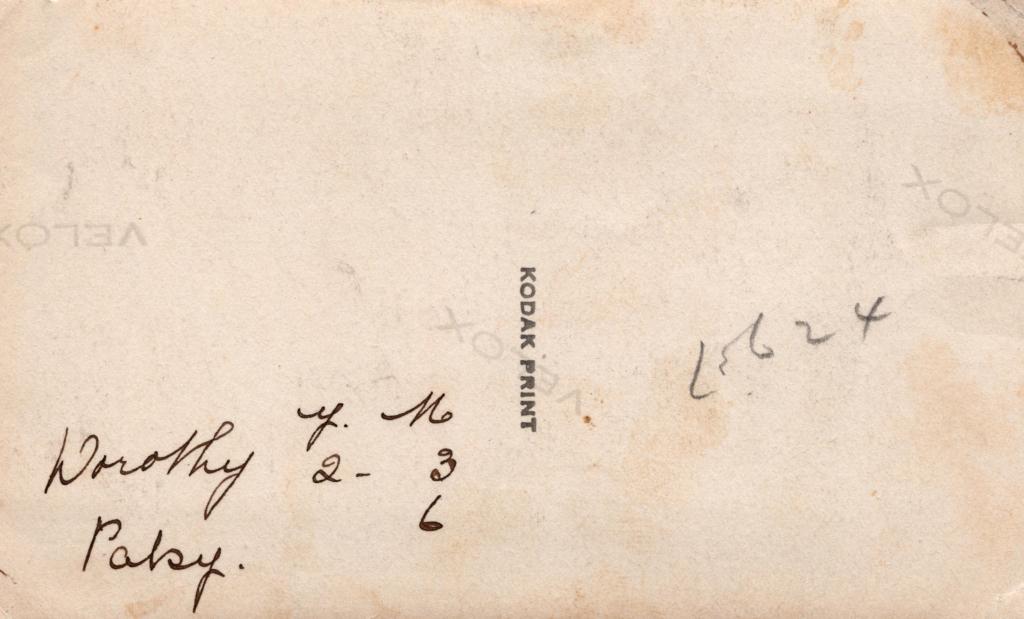 VELOX
VELOX
VELOX
KODAK PRINT
Y. M
Dorothy 2 - 3
Patsy. 6